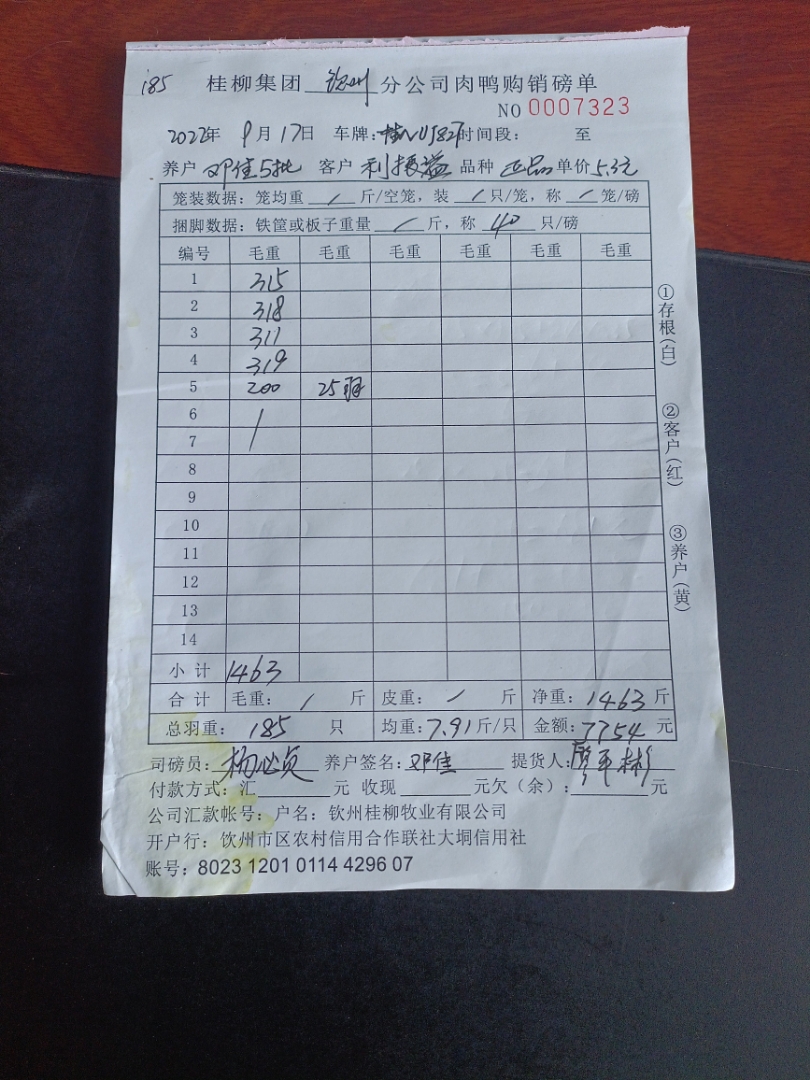 185 桂柳集团 钦州 分公司肉鸭购销磅单
NO 0007323
2022年 9月17日 车牌:桂NU582 时间段: 至
养户 邓佳5批 客户 利振益 品种 正品 单价 5.3元
笼装数据: 笼均重 / 斤/空笼, 装 / 只/笼, 称 / 笼/磅
捆脚数据: 铁筐或板子重量 / 斤, 称 40 只/磅
编号 毛重 毛重 毛重 毛重 毛重 毛重
1 315
2 318
3 311
4 319
5 200 25羽
6
7
8
9
10
11
12
13
14
小计 1463
合计 毛重: / 斤 皮重: / 斤 净重: 1463 斤
总羽重: 185 只 均重: 7.91 斤/只 金额: 7754 元
司磅员: 养户签名: 邓佳 提货人: 廖平彬
付款方式: 汇 元 收现 元欠(余): 元
公司汇款帐号: 户名: 钦州桂柳牧业有限公司
开户行: 钦州市区农村信用合作联社大垌信用社
账号: 8023 1201 0114 4296 07
①存根(白)
②客户(红)
③养户(黄)